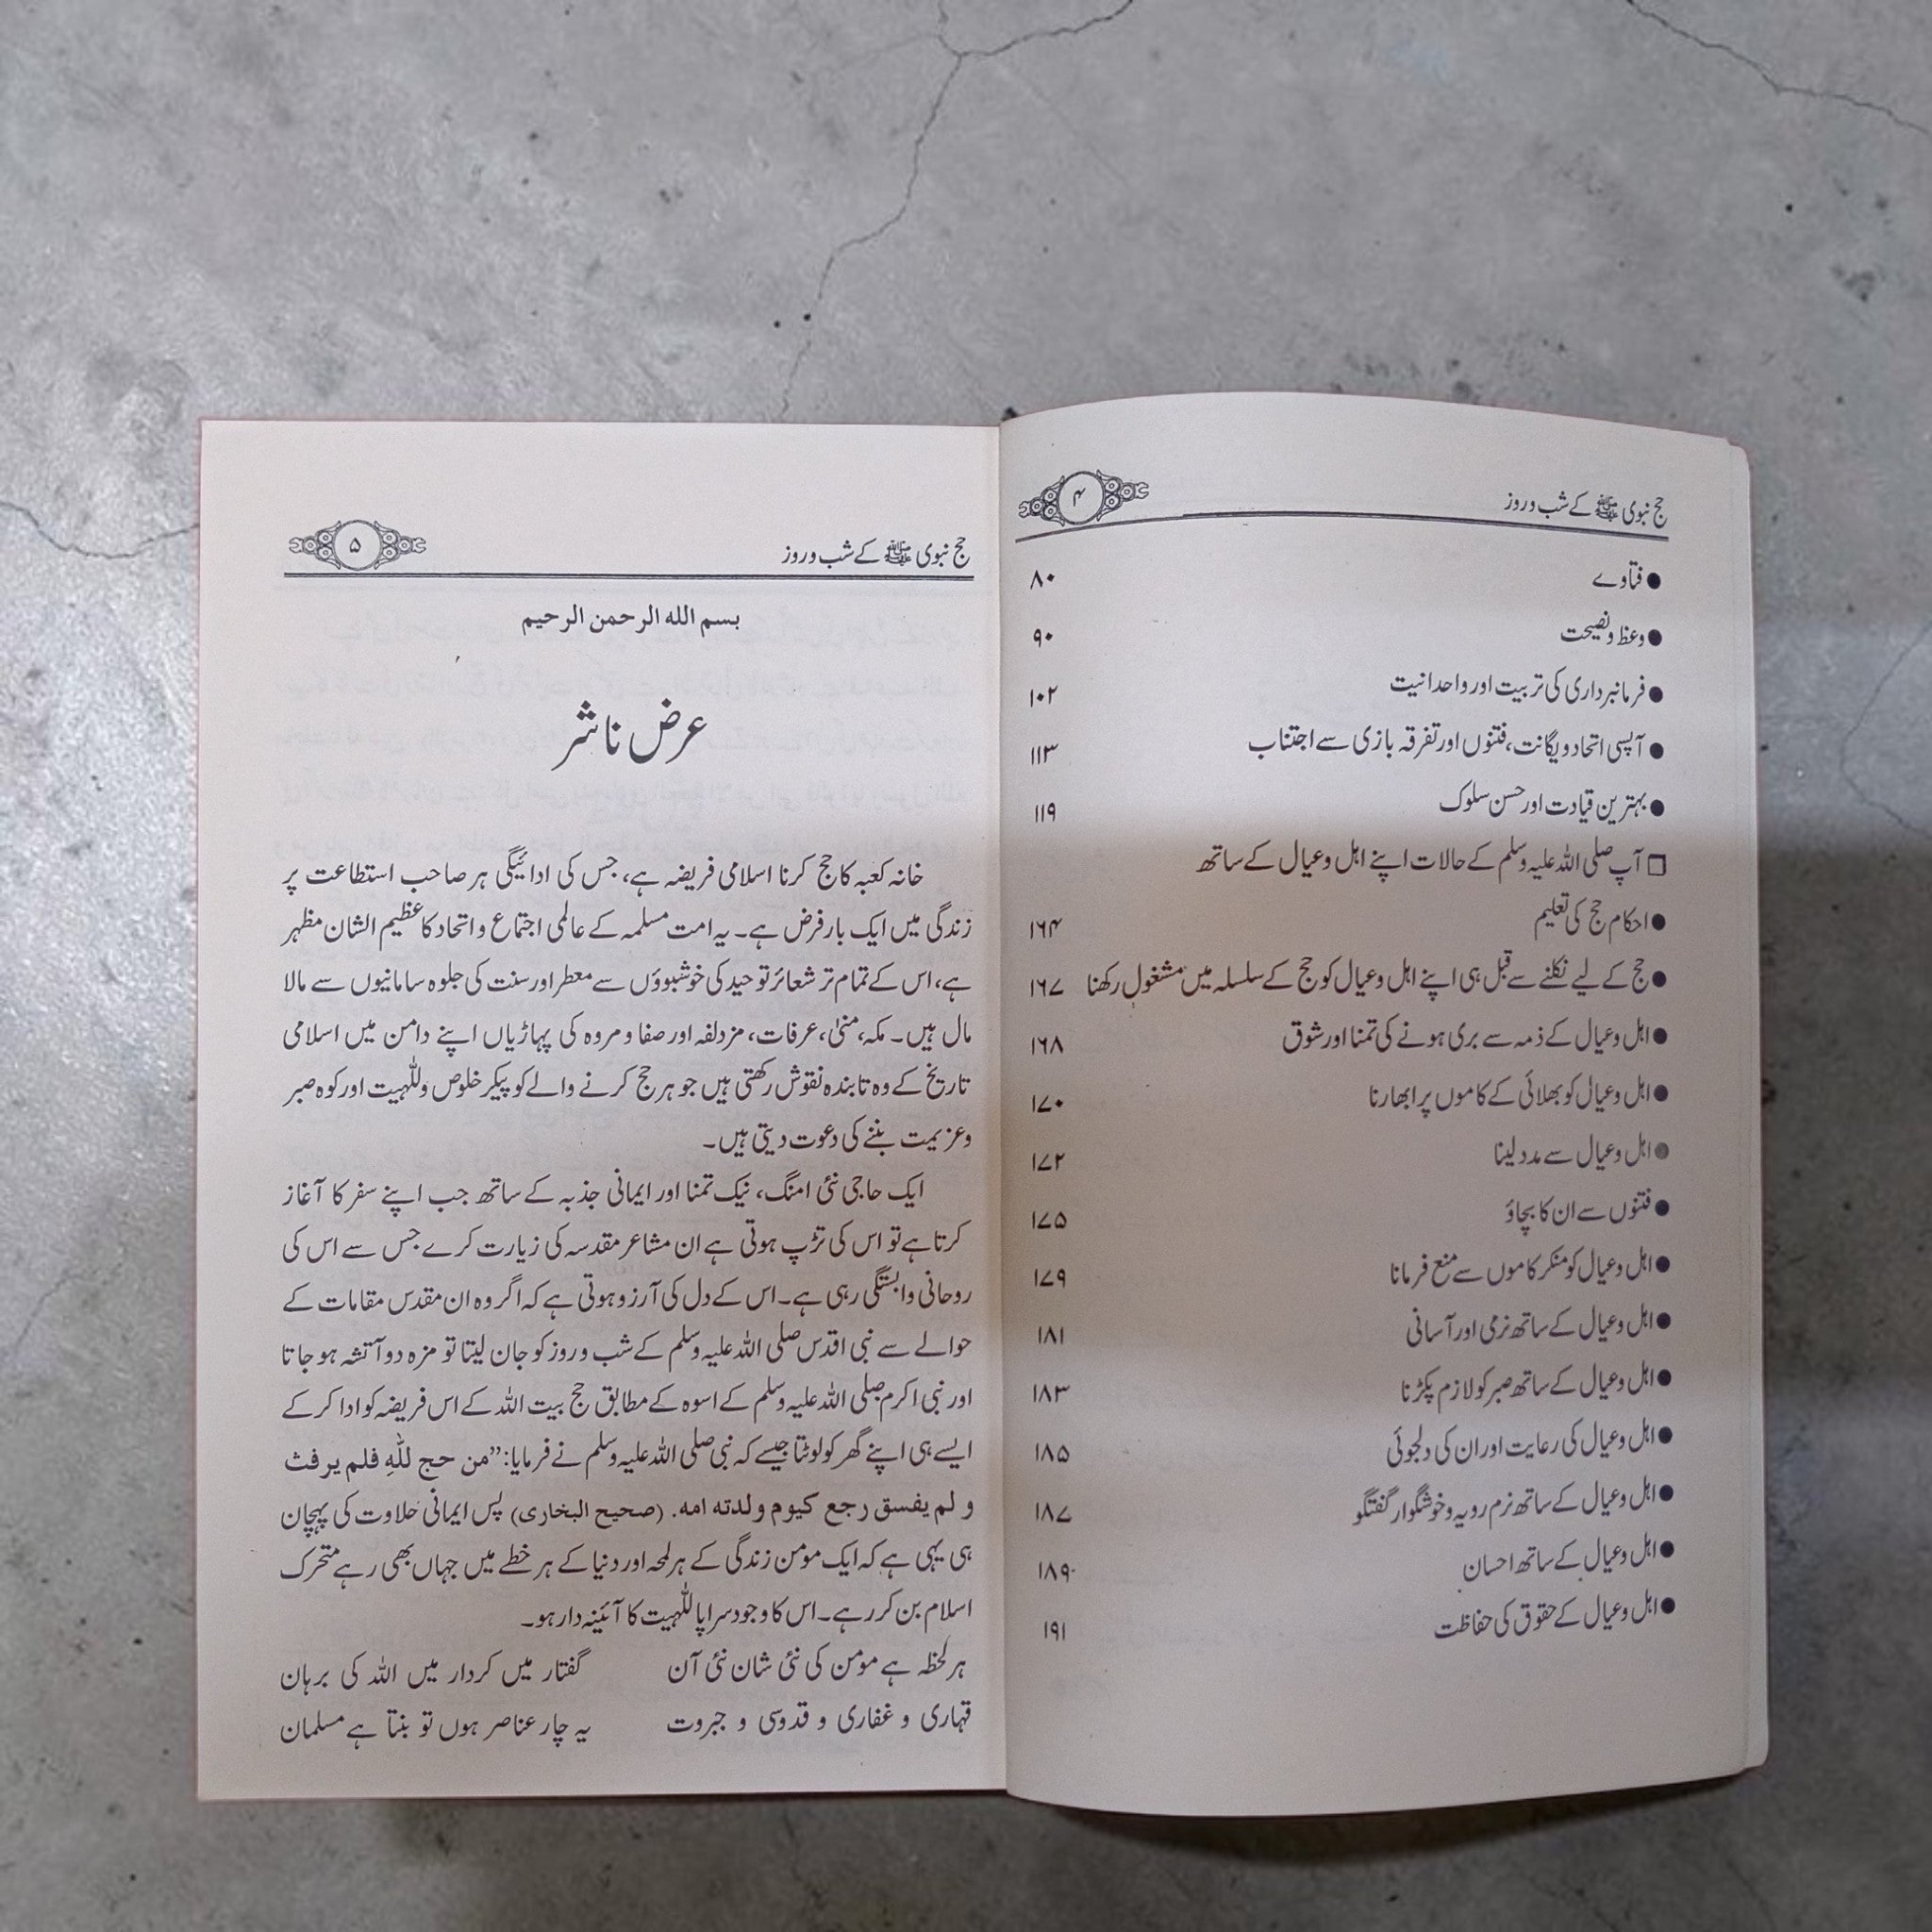 حج نبوی ﷺ کے شب و روز ۴
● فتاوے ۸۰
● وعظ و نصیحت ۹۰
● فرمانبرداری کی تربیت اور واحدانیت ۱۰۲
● آپسی اتحاد و یگانت، فتنوں اور تفرقہ بازی سے اجتناب ۱۱۳
● بہترین قیادت اور حسن سلوک ۱۱۹
□ آپ صلی اللہ علیہ وسلم کے حالات اپنے اہل و عیال کے ساتھ
● احکام حج کی تعلیم ۱۶۴
● حج کے لیے نکلنے سے قبل ہی اپنے اہل و عیال کو حج کے سلسلہ میں مشغول رکھنا ۱۶۷
● اہل و عیال کے ذمہ سے بری ہونے کی تمنا اور شوق ۱۶۸
● اہل و عیال کو بھلائی کے کاموں پر ابھارنا ۱۷۰
● اہل و عیال سے مدد لینا ۱۷۲
● فتنوں سے ان کا بچاؤ ۱۷۵
● اہل و عیال کو منکر کاموں سے منع فرمانا ۱۷۹
● اہل و عیال کے ساتھ نرمی اور آسانی ۱۸۱
● اہل و عیال کے ساتھ صبر کو لازم پکڑنا ۱۸۳
● اہل و عیال کی رعایت اور ان کی دلجوئی ۱۸۵
● اہل و عیال کے ساتھ نرم رویہ و خوشگوار گفتگو ۱۸۷
● اہل و عیال کے ساتھ احسان ۱۸۹
● اہل و عیال کے حقوق کی حفاظت ۱۹۱
حج نبوی ﷺ کے شب و روز ۵
بسم الله الرحمن الرحيم
عرض ناشر
خانہ کعبہ کا حج کرنا اسلامی فریضہ ہے، جس کی ادائیگی ہر صاحب استطاعت پر
زندگی میں ایک بار فرض ہے۔ یہ امت مسلمہ کے عالمی اجتماع و اتحاد کا عظیم الشان مظہر
ہے، اس کے تمام تر شعائر توحید کی خوشبوؤں سے معطر اور سنت کی جلوہ سامانیوں سے مالا
مال ہیں۔ مکہ، منیٰ، عرفات، مزدلفہ اور صفا و مروہ کی پہاڑیاں اپنے دامن میں اسلامی
تاریخ کے وہ تابندہ نقوش رکھتی ہیں جو ہر حج کرنے والے کو پیکر خلوص وللہیت اور کوہ صبر
وعزیمت بننے کی دعوت دیتی ہیں۔
ایک حاجی نئی امنگ، نیک تمنا اور ایمانی جذبہ کے ساتھ جب اپنے سفر کا آغاز
کرتا ہے تو اس کی تڑپ ہوتی ہے ان مشاعر مقدسہ کی زیارت کرے جس سے اس کی
روحانی وابستگی رہی ہے۔ اس کے دل کی آرزو ہوتی ہے کہ اگر وہ ان مقدس مقامات کے
حوالے سے نبی اقدس صلی اللہ علیہ وسلم کے شب و روز کو جان لیتا تو مزہ دوآتشہ ہو جاتا
اور نبی اکرم صلی اللہ علیہ وسلم کے اسوہ کے مطابق حج بیت اللہ کے اس فریضہ کو ادا کر کے
ایسے ہی اپنے گھر کو لوٹتا جیسے کہ نبی صلی اللہ علیہ وسلم نے فرمایا: ”من حج للّٰہ فلم یرفث
و لم یفسق رجع کیوم ولدته امه. (صحیح البخاری) پس ایمانی حلاوت کی پہچان
ہی یہی ہے کہ ایک مومن زندگی کے ہر لمحہ اور دنیا کے ہر خطے میں جہاں بھی رہے متحرک
اسلام بن کر رہے۔ اس کا وجود سراپا للّٰہیت کا آئینہ دار ہو۔
ہر لحظہ ہے مومن کی نئی شان نئی آن گفتار میں کردار میں اللہ کی برہان
قہاری و غفاری و قدوسی و جبروت یہ چار عناصر ہوں تو بنتا ہے مسلمان